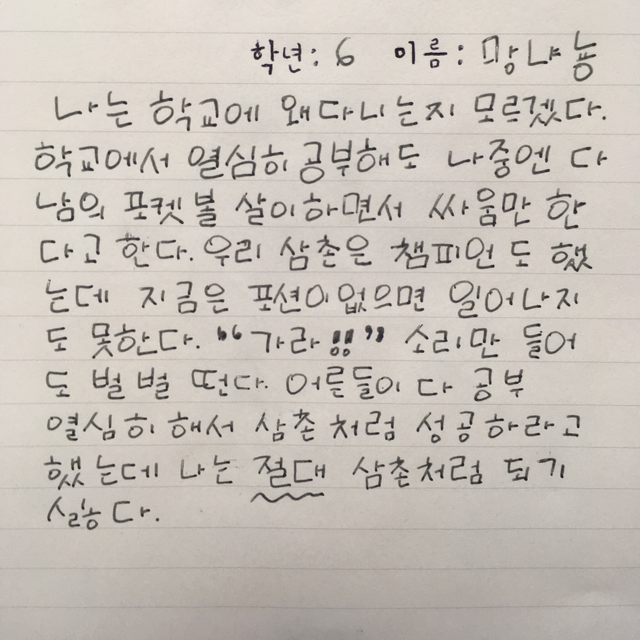 학년: 6 이름: 망냐뇽
나는 학교에 왜다니는지 모르겠다.
학교에서 열심히 공부해도 나중엔 다
남의 포켓볼 살이하면서 싸움만 한
다고 한다. 우리 삼촌은 챔피언 도 했
는데 지금은 포션이없으면 일어나지
도 못한다. "가라!!" 소리만 들어
도 벌벌 떤다. 어른들이 다 공부
열심히 해서 삼촌처럼 성공하라고
했는데 나는 절대 삼촌처럼 되기
싫다.